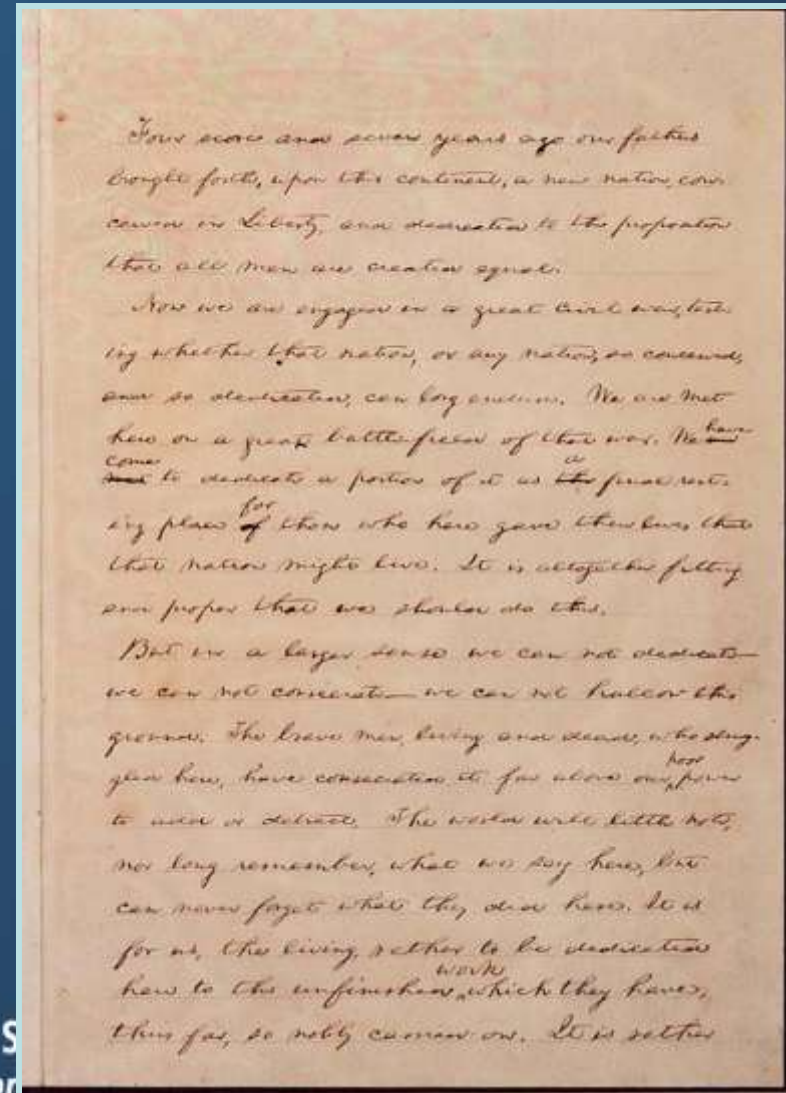 Four score and seven years ago our fathers
brought forth, upon this continent, a new nation, con-
ceived in Liberty, and dedicated to the proposition
that all men are created equal.
Now we are engaged in a great civil war, test-
ing whether that nation, or any nation, so conceived,
and so dedicated, can long endure. We are met
here on a great battlefield of that war. We have
come to dedicate a portion of it as a final rest-
ing place for those who here gave their lives that
that nation might live. It is altogether fitting
and proper that we should do this.
But in a larger sense we can not dedicate—
we can not consecrate—we can not hallow this
ground. The brave men, living and dead, who strug-
gled here, have consecrated it far above our poor power
to add or detract. The world will little note,
nor long remember, what we say here, but
can never forget what they did here. It is
for us, the living, rather to be dedicated
here to the unfinished work which they have,
thus far, so nobly carried on. It is rather
S